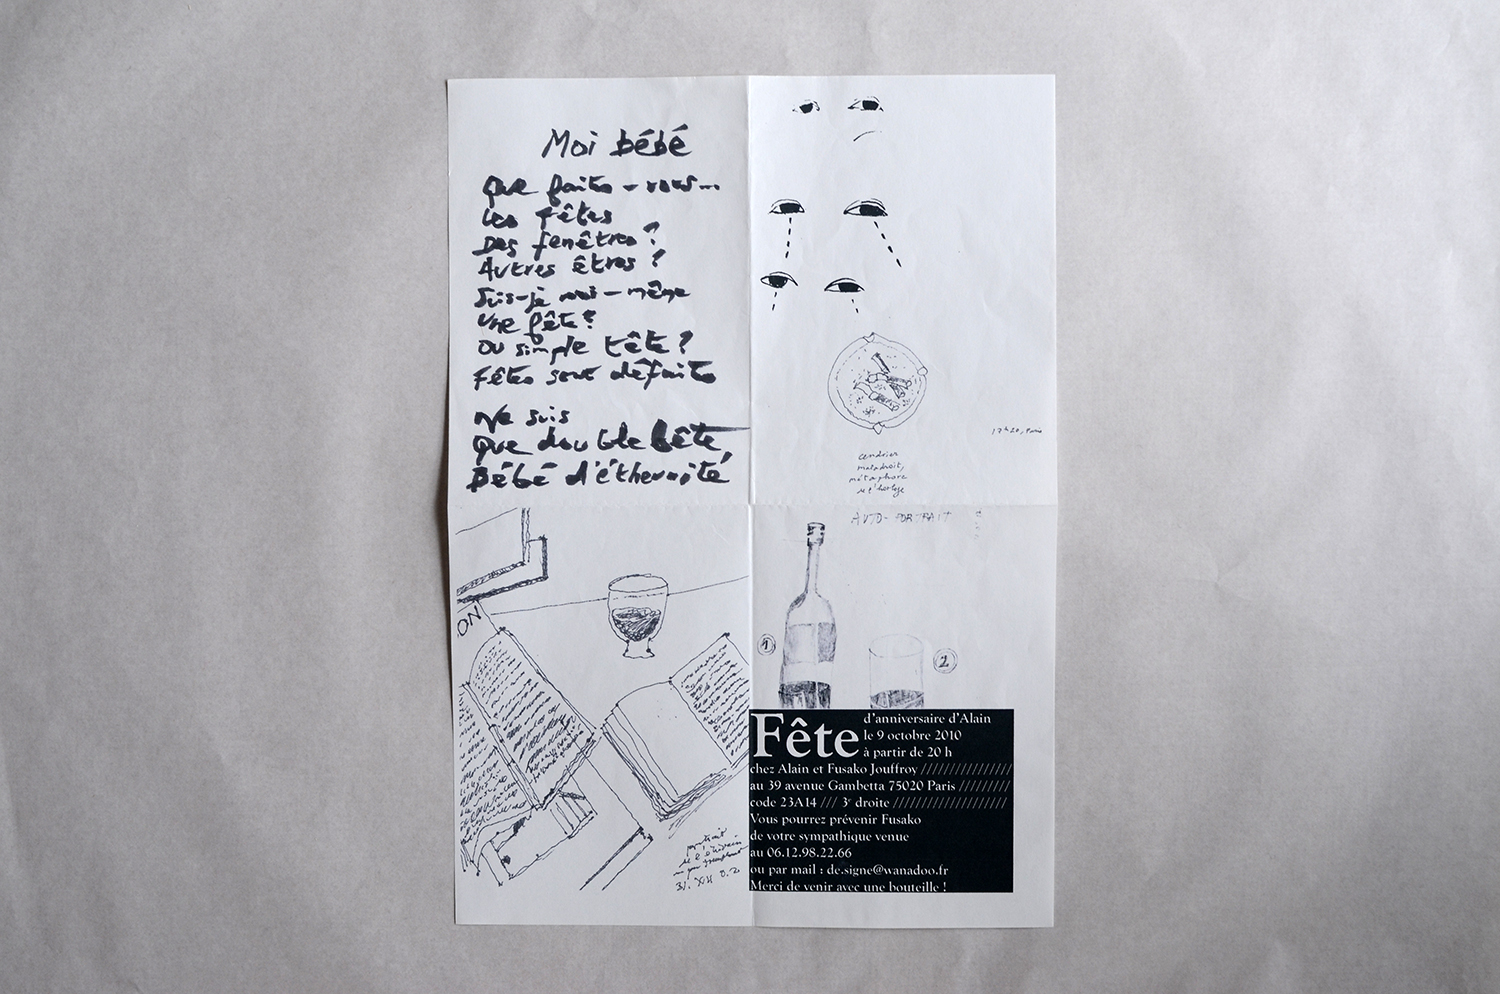 Moi bébé
Que faites-vous...
Les fêtes
Des fenêtres ?
Autres êtres ?
Suis-je moi-même
Une fête ?
Ou simple tête ?
Fêtes sont défaites
Ne suis
Que double bête,
Bébé d'éthernité
17h20, Paris
cendrier
maladroit,
métaphore
de l'horloge
AUTO-PORTRAIT
1
2
ON
portrait
de l'écrivain
31. XII
Fête d'anniversaire d'Alain
le 9 octobre 2010
à partir de 20 h
chez Alain et Fusako Jouffroy /////////////////
au 39 avenue Gambetta 75020 Paris /////////
code 23A14 /// 3e droite /////////////////////
Vous pourrez prévenir Fusako
de votre sympathique venue
au 06.12.98.22.66
ou par mail : de.signe@wanadoo.fr
Merci de venir avec une bouteille !